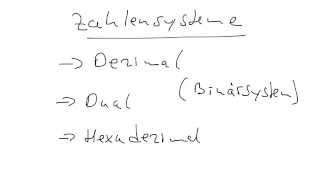 Zahlensysteme
→ Dezimal
→ Dual (Binärsystem)
→ Hexadezimal